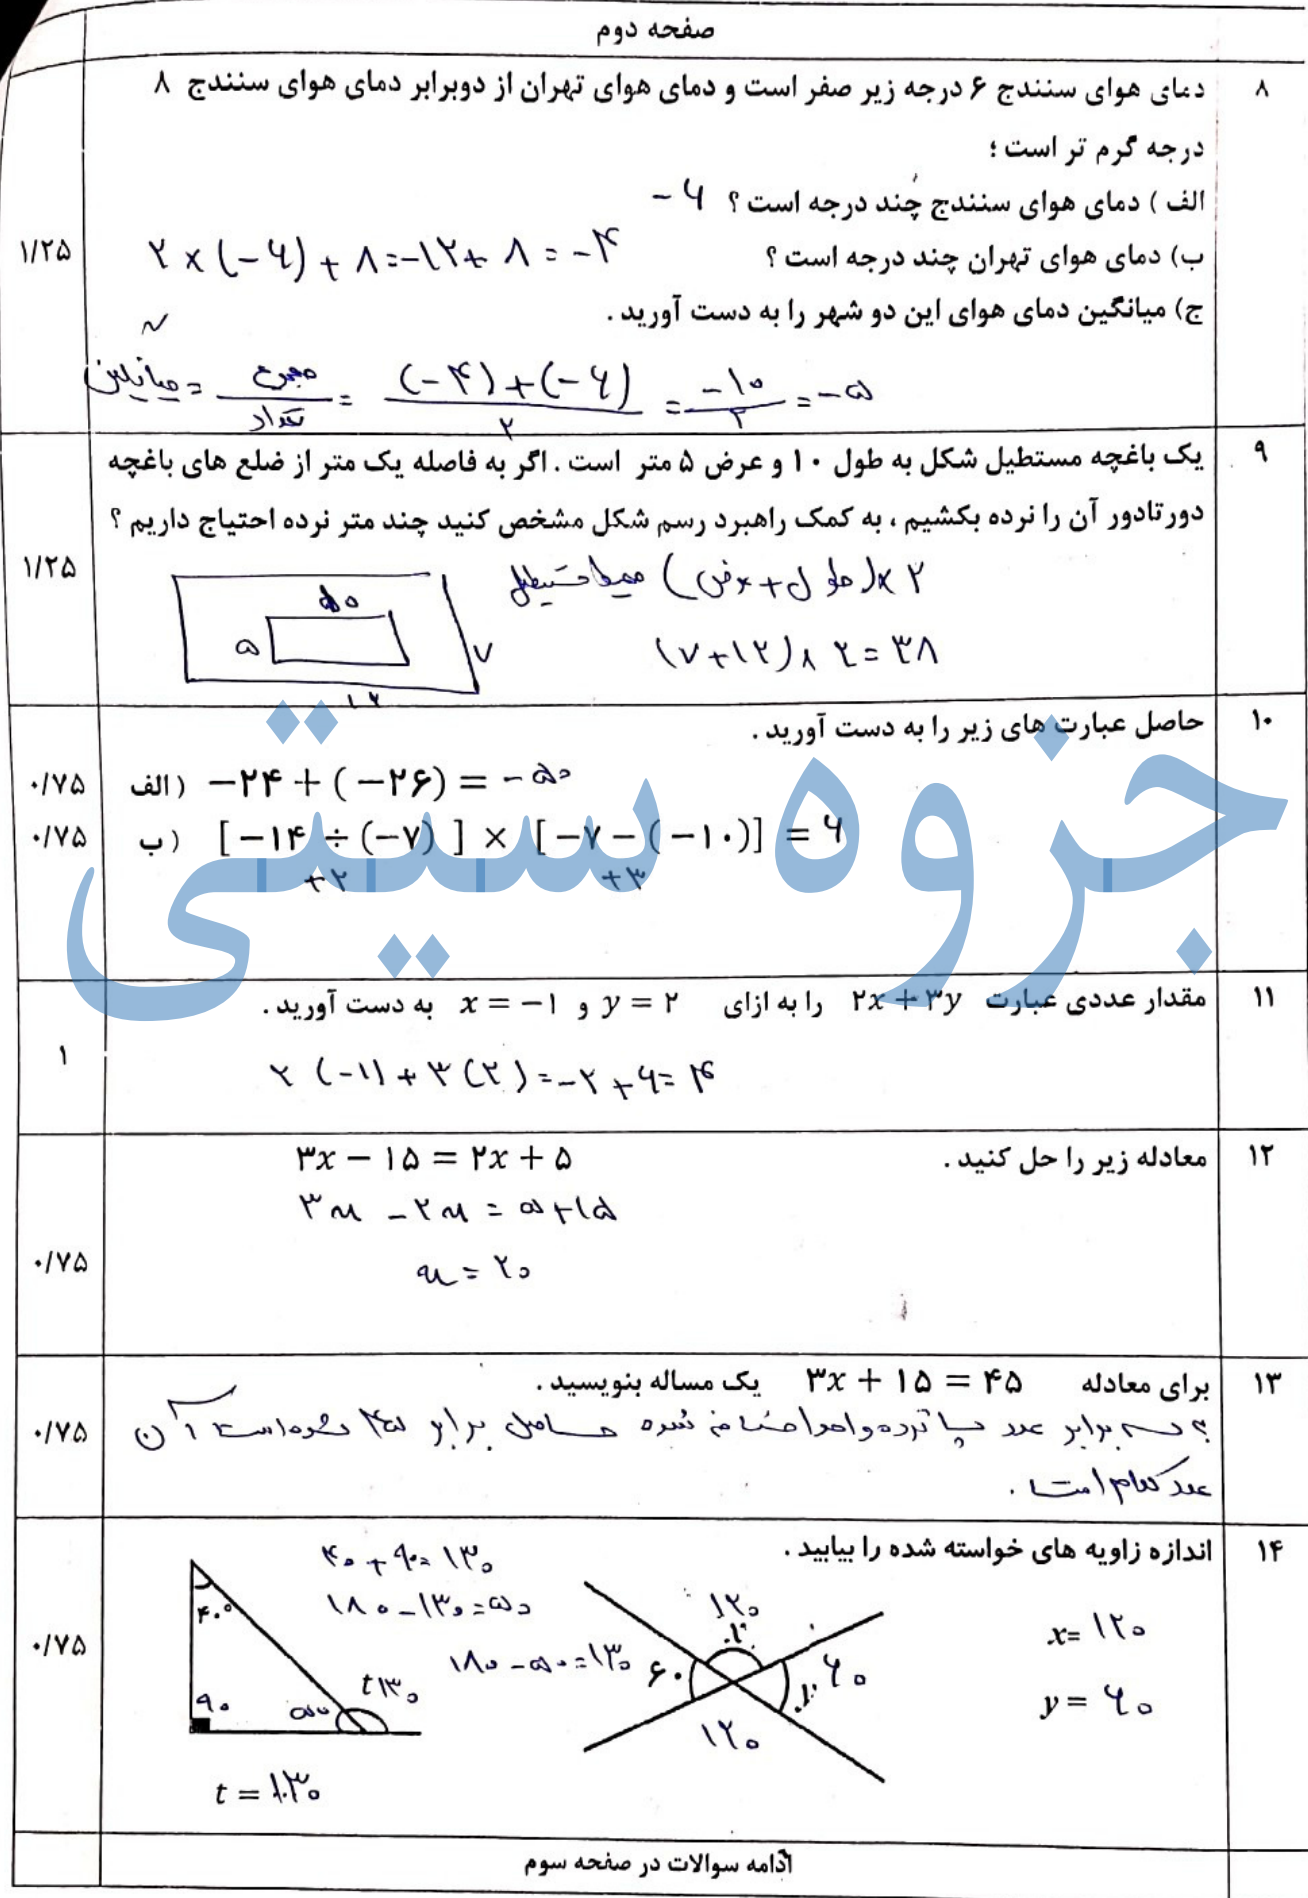 صفحه دوم
۸
دمای هوای سنندج ۶ درجه زیر صفر است و دمای هوای تهران از دوبرابر دمای هوای سنندج ۸
درجه گرم تر است ؛
الف ) دمای هوای سنندج چند درجه است ؟ -۶
ب) دمای هوای تهران چند درجه است ؟ ۲ × (-۶) + ۸ = -۱۲ + ۸ = -۴
۱/۲۵
ج) میانگین دمای هوای این دو شهر را به دست آورید .
میانگین = مجموع / تعداد = (-۴)+(-۶) / ۲ = -۱۰ / ۲ = -۵
۹
یک باغچه مستطیل شکل به طول ۱۰ و عرض ۵ متر است . اگر به فاصله یک متر از ضلع های باغچه
دورتادور آن را نرده بکشیم ، به کمک راهبرد رسم شکل مشخص کنید چند متر نرده احتیاج داریم ؟
۱/۲۵
۲ × (طول + عرض) محیط مستطیل
۱۰
۵
۷
۱۲
(۷+۱۲) × ۲ = ۳۸
۱۰
حاصل عبارت های زیر را به دست آورید .
الف ) -۲۴ + (-۲۶) = -۵۰
۰/۷۵
ب ) [-۱۴ ÷ (-۷) ] × [-۷ - (-۱۰)] = ۶
۰/۷۵
+۲ +۳
جزوه سیتی
۱۱
مقدار عددی عبارت ۲x + ۳y را به ازای y = ۲ و x = -۱ به دست آورید .
۱
۲ (-۱) + ۳ (۲) = -۲ + ۶ = ۴
۱۲
معادله زیر را حل کنید . ۳x - ۱۵ = ۲x + ۵
۳x - ۲x = ۵+۱۵
x = ۲۰
۰/۷۵
۱۳
برای معادله ۳x + ۱۵ = ۴۵ یک مساله بنویسید .
به سه برابر عدد پانزده واحد اضافه شده حاصل برابر ۴۵ شده است آن
عدد کدام است .
۰/۷۵
۱۴
اندازه زاویه های خواسته شده را بیابید .
۰/۷۵
۴۰ + ۹۰ = ۱۳۰
۱۸۰ - ۱۳۰ = ۵۰
۱۸۰ - ۵۰ = ۱۳۰
۴۰°
۹۰
۵۰
t ۱۳۰
t = ۱۳۰
۱۲۰
۶۰
۶۰
۱۲۰
x= ۱۲۰
y = ۶۰
ادامه سوالات در صفحه سوم